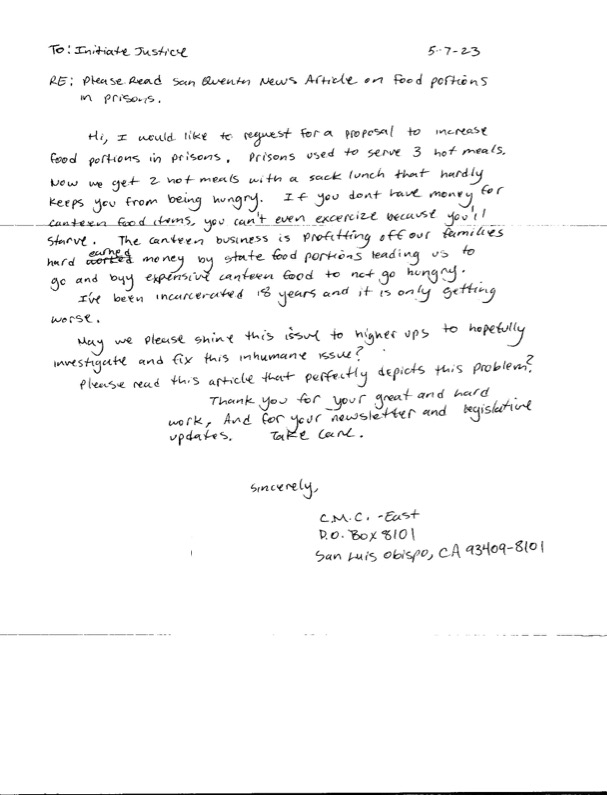 To: Initiate Justice 5-7-23
RE: Please Read San Quentin News Article on food portions
in prisons.
Hi, I would like to request for a proposal to increase
food portions in prisons. Prisons used to serve 3 hot meals.
Now we get 2 hot meals with a sack lunch that hardly
keeps you from being hungry. If you dont have money for
canteen food items, you can't even excercize because you'll
starve. The canteen business is profitting off our families
hard worked earned money by state food portions leading us to
go and buy expensive canteen food to not go hungry.
I've been incarcerated 18 years and it is only getting
worse.
May we please shine this issue to higher ups to hopefully
investigate and fix this inhumane issue?
Please read this article that perfectly depicts this problem?
Thank you for your great and hard
work, And for your newsletter and legislative
updates. Take care.
Sincerely,
C.M.C. -East
P.O. Box 8101
San Luis Obispo, CA 93409-8101